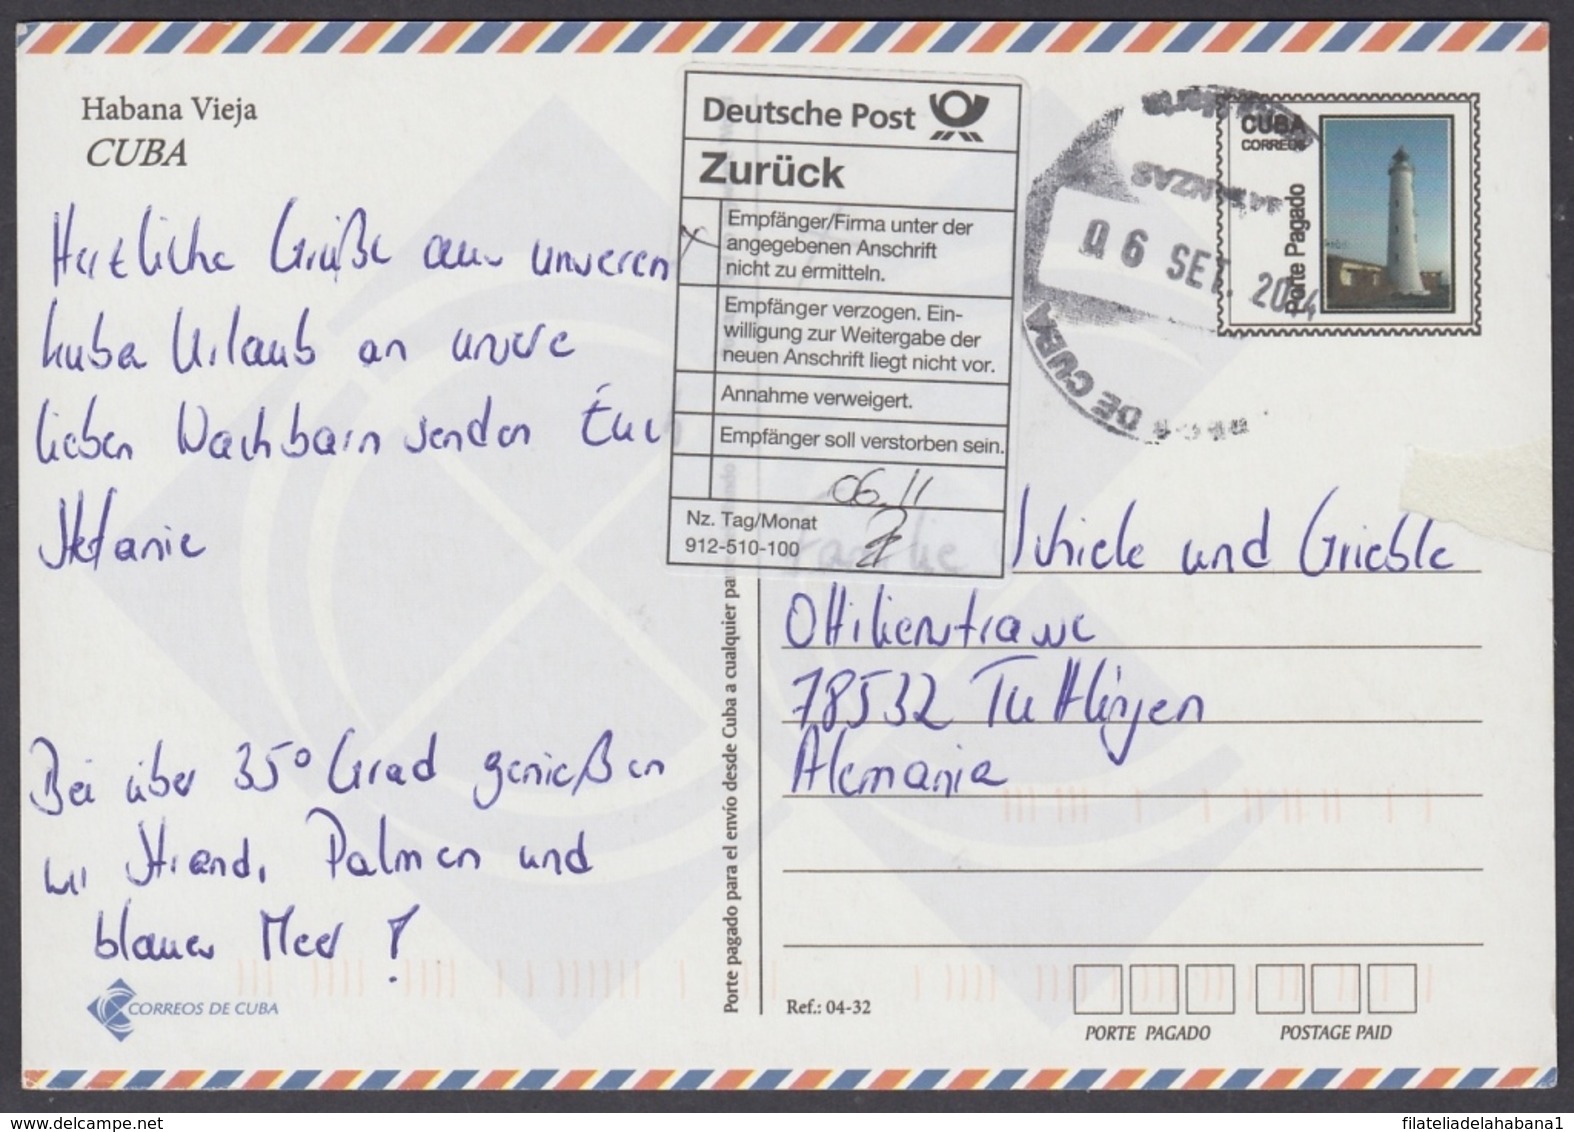 Habana Vieja
CUBA
Herzliche Grüße aus unseren
kuba Urlaub an unsere
lieben Nachbarn senden Euch
Stefanie
Bei über 35° Grad genießen
wir Strand, Palmen und
blaues Meer!
CORREOS DE CUBA
Deutsche Post
Zurück
Empfänger/Firma unter der
angegebenen Anschrift
nicht zu ermitteln.
Empfänger verzogen. Ein-
willigung zur Weitergabe der
neuen Anschrift liegt nicht vor.
Annahme verweigert.
Empfänger soll verstorben sein.
06.11
Nz. Tag/Monat
912-510-100
DE CUBA
06 SET. 2014
CUBA
CORREOS
Porte Pagado
Familie Schiele und Grieble
Ottilienstrasse
78532 Tuttlingen
Alemania
Porte pagado para el envío desde Cuba a cualquier
Ref.: 04-32
PORTE PAGADO
POSTAGE PAID
www.delcampe.net
filateliadelahabana1